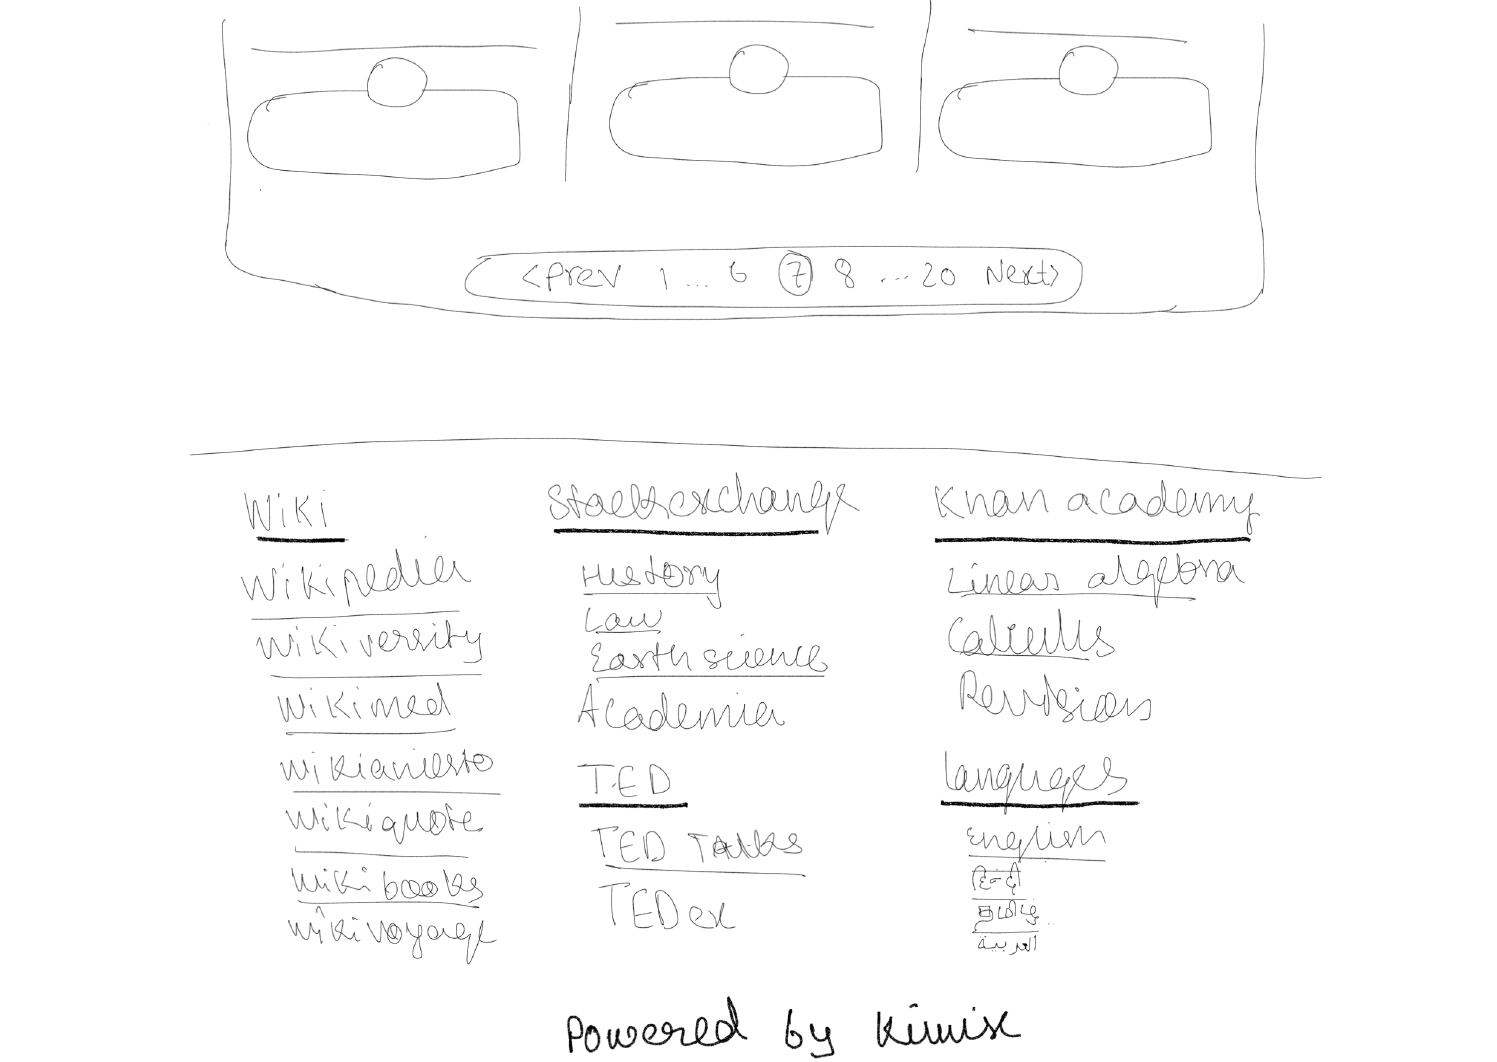 <Prev 1 ... 6 7 8 ... 20 Next>
Wiki
Wikipedia
Wikiversity
Wikimed
Wikiquote
Wikibooks
Wikivoyage
Stackexchange
History
Law
Earth science
Academia
TED
TED Talks
TEDex
Khan academy
Linear algebra
Calculus
Languges
English
हिन्दी
தமிழ்
العربية
Powered by Kiwix